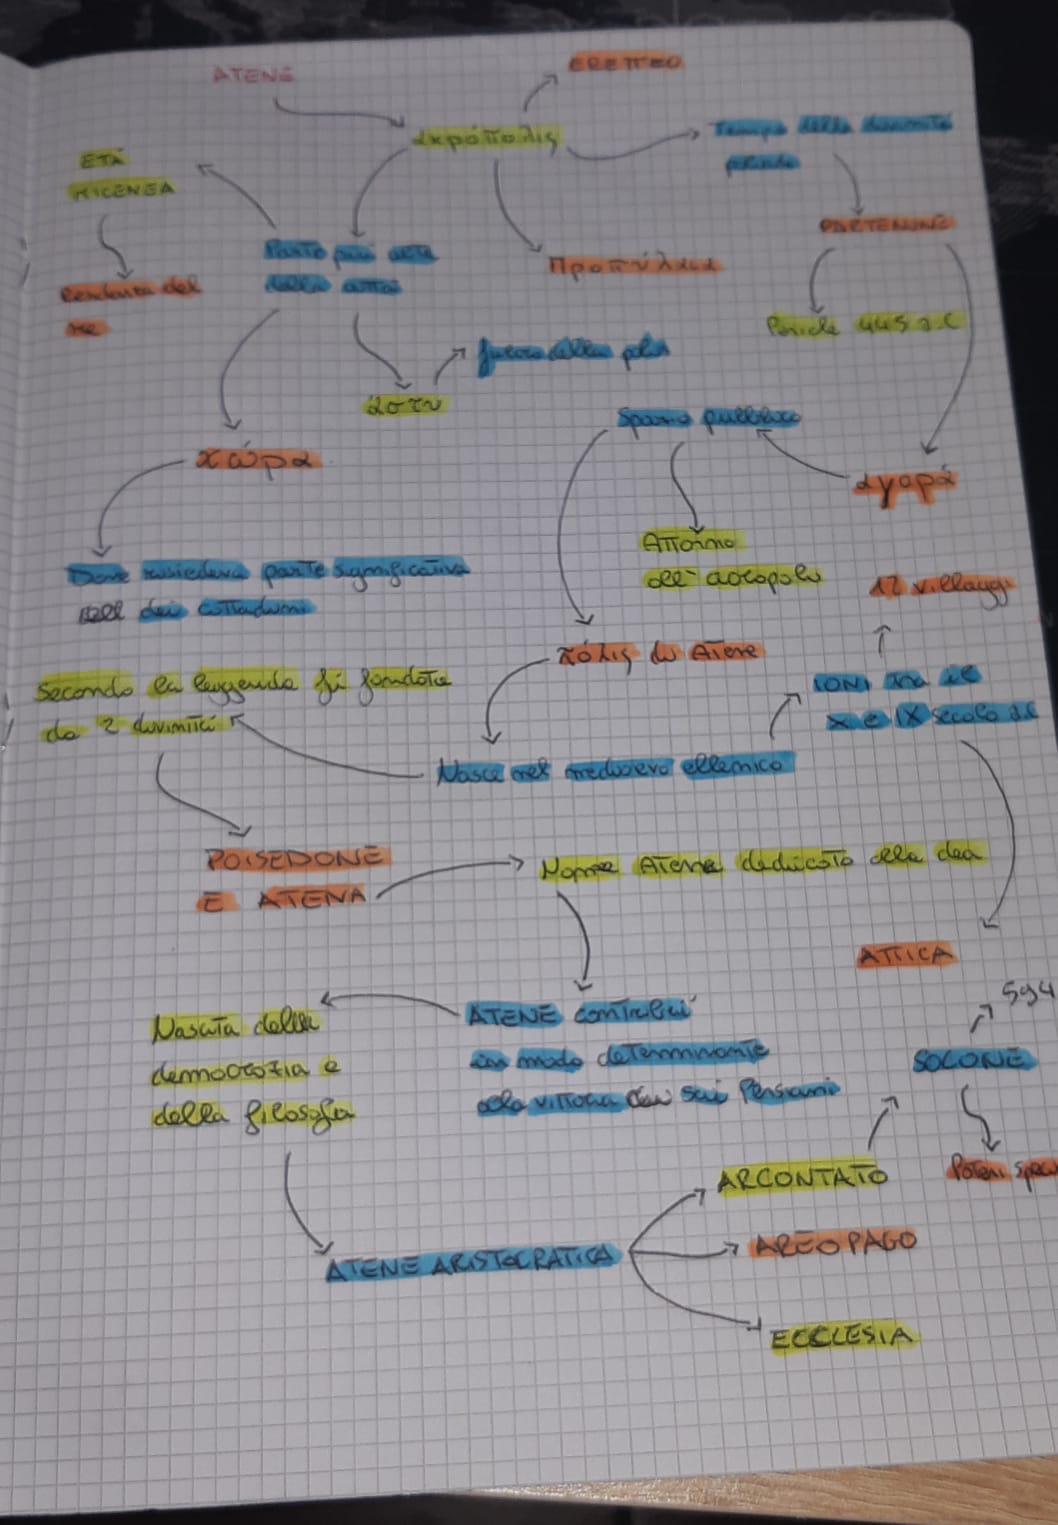 ATENE
ERETTEO
ἀκρόπολις
Tempio della divinità
ETÀ
MICENEA
PARTENONE
Parte più alta
della città
Προπύλαια
Residenza del
re
Pericle 445 a.C
fulcro della polis
ἄστυ
Spazio pubblico
χώρα
ἀγορά
Attorno
all'acropoli
Dove risiedeva parte significativa
dei contadini
12 villaggi
πόλις di Atene
Secondo la leggenda fu fondata
da 2 divinità
IONI tra il
X e IX secolo a.C
Nasce nel medioevo ellenico
POISEDONE
E ATENA
Nome Atene dedicato alla dea
ATTICA
594
Nascita della
democrazia e
della filosofia
ATENE contribuì
in modo determinante
alla vittoria sui Persiani
SOLONE
ARCONTATO
Poteri
AREOPAGO
ATENE ARISTOCRATICA
ECCLESIA